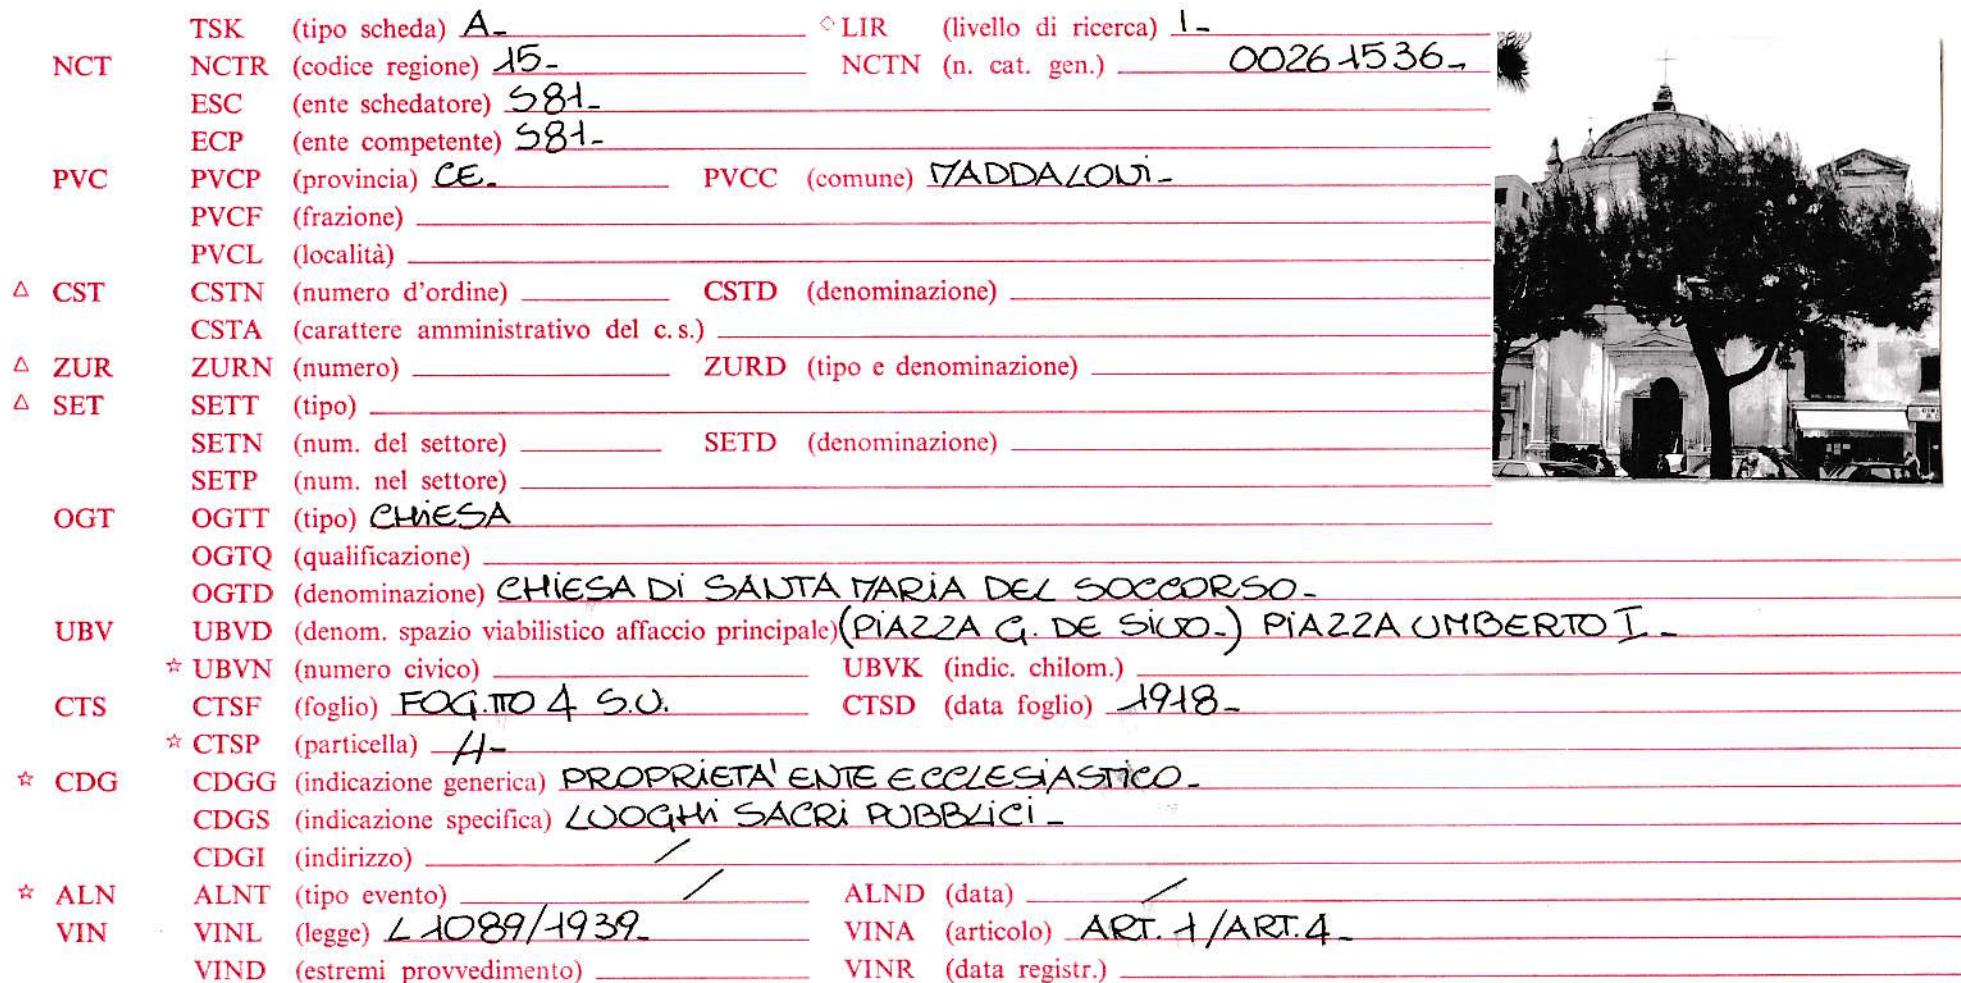 TSK (tipo scheda) A- ◇ LIR (livello di ricerca) I-
NCT NCTR (codice regione) 15- NCTN (n. cat. gen.) 00261536-
ESC (ente schedatore) S81-
ECP (ente competente) S81-
PVC PVCP (provincia) CE- PVCC (comune) MADDALONI-
PVCF (frazione)
PVCL (località)
△ CST CSTN (numero d'ordine) CSTD (denominazione)
CSTA (carattere amministrativo del c.s.)
△ ZUR ZURN (numero) ZURD (tipo e denominazione)
△ SET SETT (tipo)
SETN (num. del settore) SETD (denominazione)
SETP (num. nel settore)
OGT OGTT (tipo) CHIESA
OGTQ (qualificazione)
OGTD (denominazione) CHIESA DI SANTA MARIA DEL SOCCORSO-
UBV UBVD (denom. spazio viabilistico affaccio principale) (PIAZZA G. DE SIVO-) PIAZZA UMBERTO I-
☆ UBVN (numero civico) UBVK (indic. chilom.)
CTS CTSF (foglio) 4 S.U. CTSD (data foglio) 1918-
☆ CTSP (particella)
☆ CDG CDGG (indicazione generica) PROPRIETA' ENTE ECCLESIASTICO-
CDGS (indicazione specifica) LUOGHI SACRI PUBBLICI-
CDGI (indirizzo) /
☆ ALN ALNT (tipo evento) / ALND (data) /
VIN VINL (legge) L 1089/1939- VINA (articolo) ART. 1/ART. 4-
VIND (estremi provvedimento) VINR (data registr.)